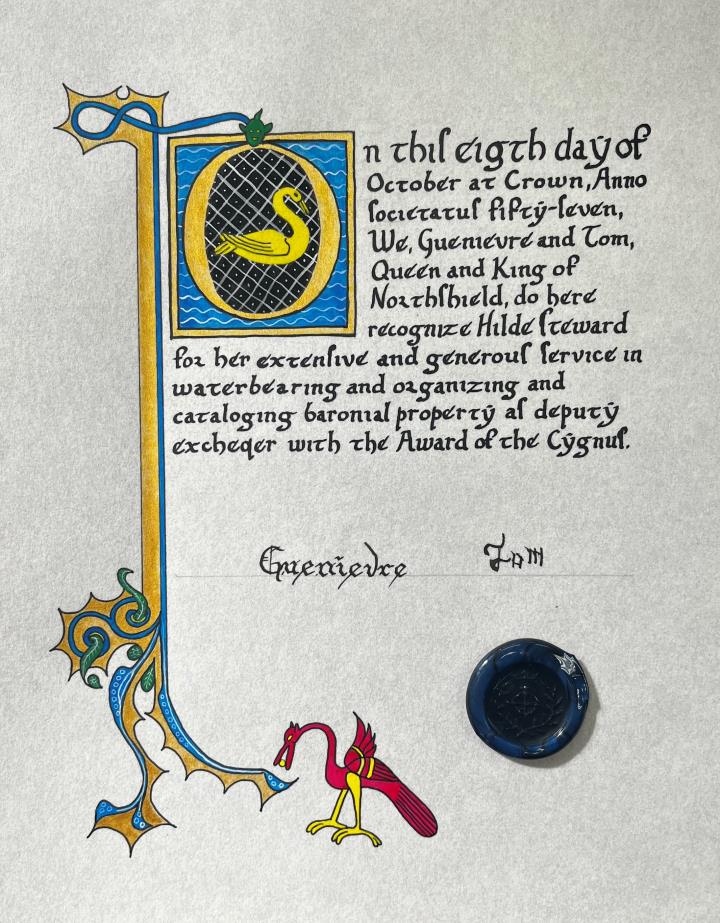 On this eigth day of
October at Crown, Anno
societatus fifty-seven,
We, Guenievre and Tom,
Queen and King of
Northshield, do here
recognize Hilde steward
for her extensive and generous service in
waterbearing and organizing and
cataloging baronial property as deputy
excheqer with the Award of the Cygnus.
Guenievre Tom